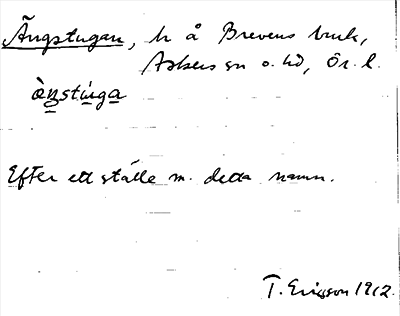 Ängstugan, h å Brevens bruk,
Askers sn o. hd, Ör. l.
ὰn̠stú̠ga̠
Efter ett ställe m. detta namn.
T. Ericsson 1912.